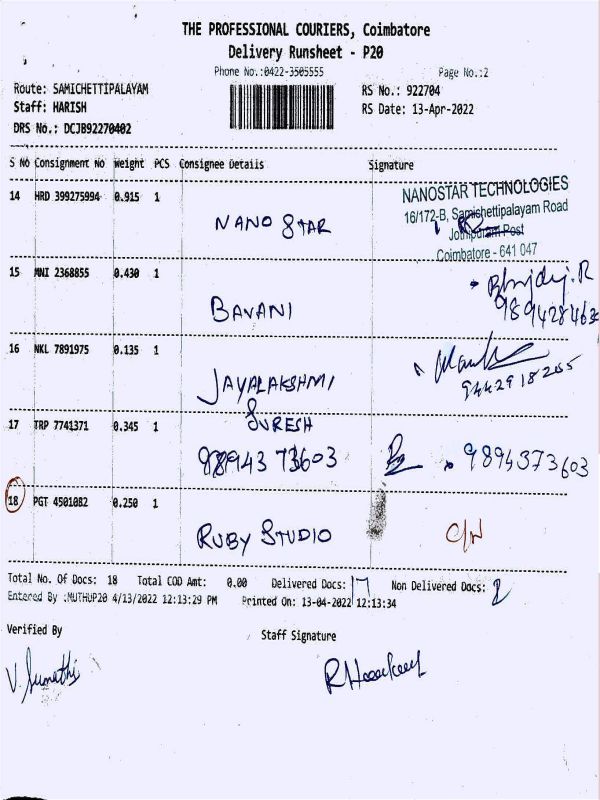 THE PROFESSIONAL COURIERS, Coimbatore
Delivery Runsheet - P20
Phone No.:0422-3505555
Page No.:2
Route: SAMICHETTIPALAYAM
RS No.: 922704
Staff: HARISH
RS Date: 13-Apr-2022
DRS No.: DCJB92270402
S No Consignment No Weight PCS Consignee Details Signature
14 HRD 399275994 0.915 1
NANO STAR
NANOSTAR TECHNOLOGIES
16/172-B, Samichettipalayam Road
Jothipuram Post
Coimbatore - 641 047
15 MNI 2368855 0.430 1
BAVANI
989428463
16 NKL 7891975 0.135 1
JAYALAKSHMI
9442918255
17 TRP 7741371 0.345 1
SURESH
9894373603
9894373603
18 PGT 4501082 0.250 1
RUBY STUDIO
Total No. Of Docs: 18 Total COD Amt: 0.00 Delivered Docs: 17 Non Delivered Docs:
Entered By :MUTHUP20 4/13/2022 12:13:29 PM Printed On: 13-04-2022 12:13:34
Verified By
Staff Signature
V. Sumathi